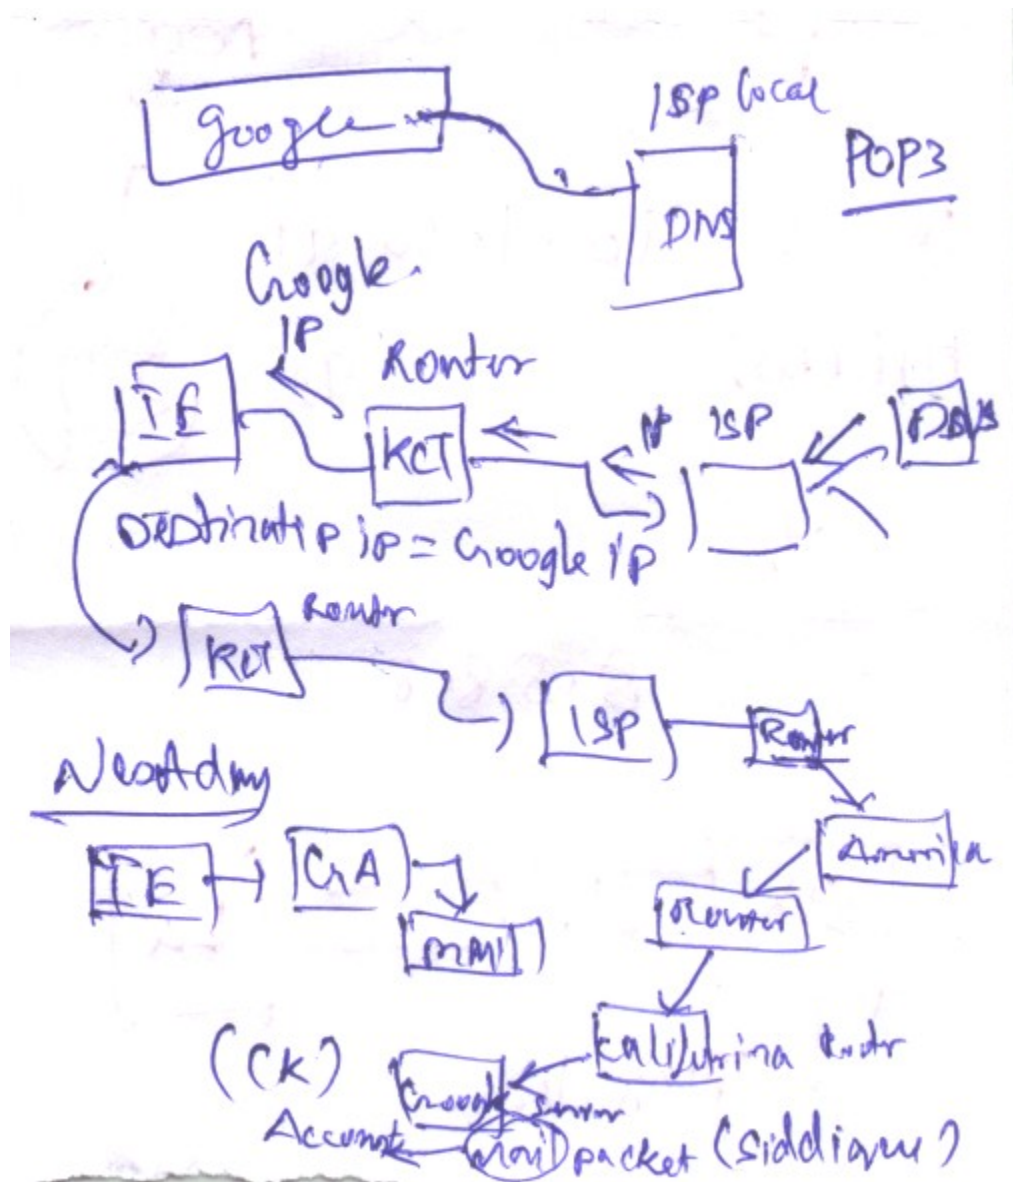 Google
ISP local
POP3
DNS
Google
IP
Router
IE
KCT
IP ISP
DNS
ip = Google ip
KCT Router
ISP Router
Nextday
America
IE GA
Router
California Router
(CK)
Google server
Account Mail packet (Siddique)